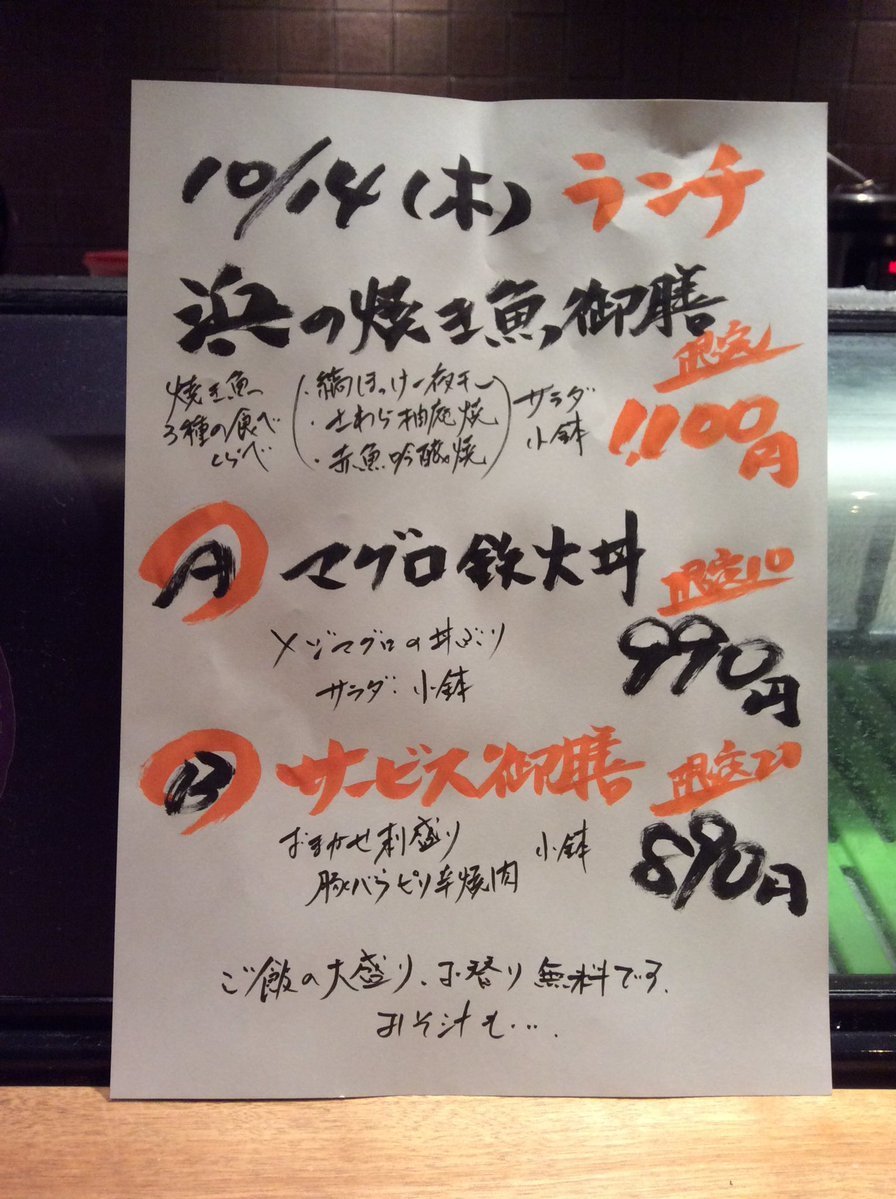 10/14(木) ランチ
浜の焼き魚御膳
限定
1,100円
焼き魚
3種の食べ
くらべ
・縞ほっけ一夜干し
・さわら柚庵焼
・赤魚吟醸焼
サラダ
小鉢
A マグロ鉄火丼 限定10
メジマグロの丼ぶり
サラダ・小鉢
990円
B サービス御膳 限定20
おまかせ刺盛り 小鉢
豚バラピリ辛焼肉
890円
ご飯の大盛り、お替り無料です。
おそ汁も….